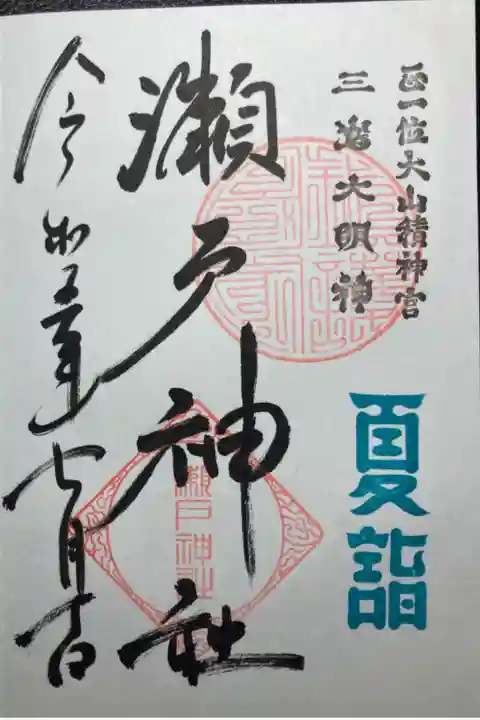 正一位大山積神宮
三嶋大明神
夏詣
瀬戸神社
瀬戸神社
令和五年七月吉日